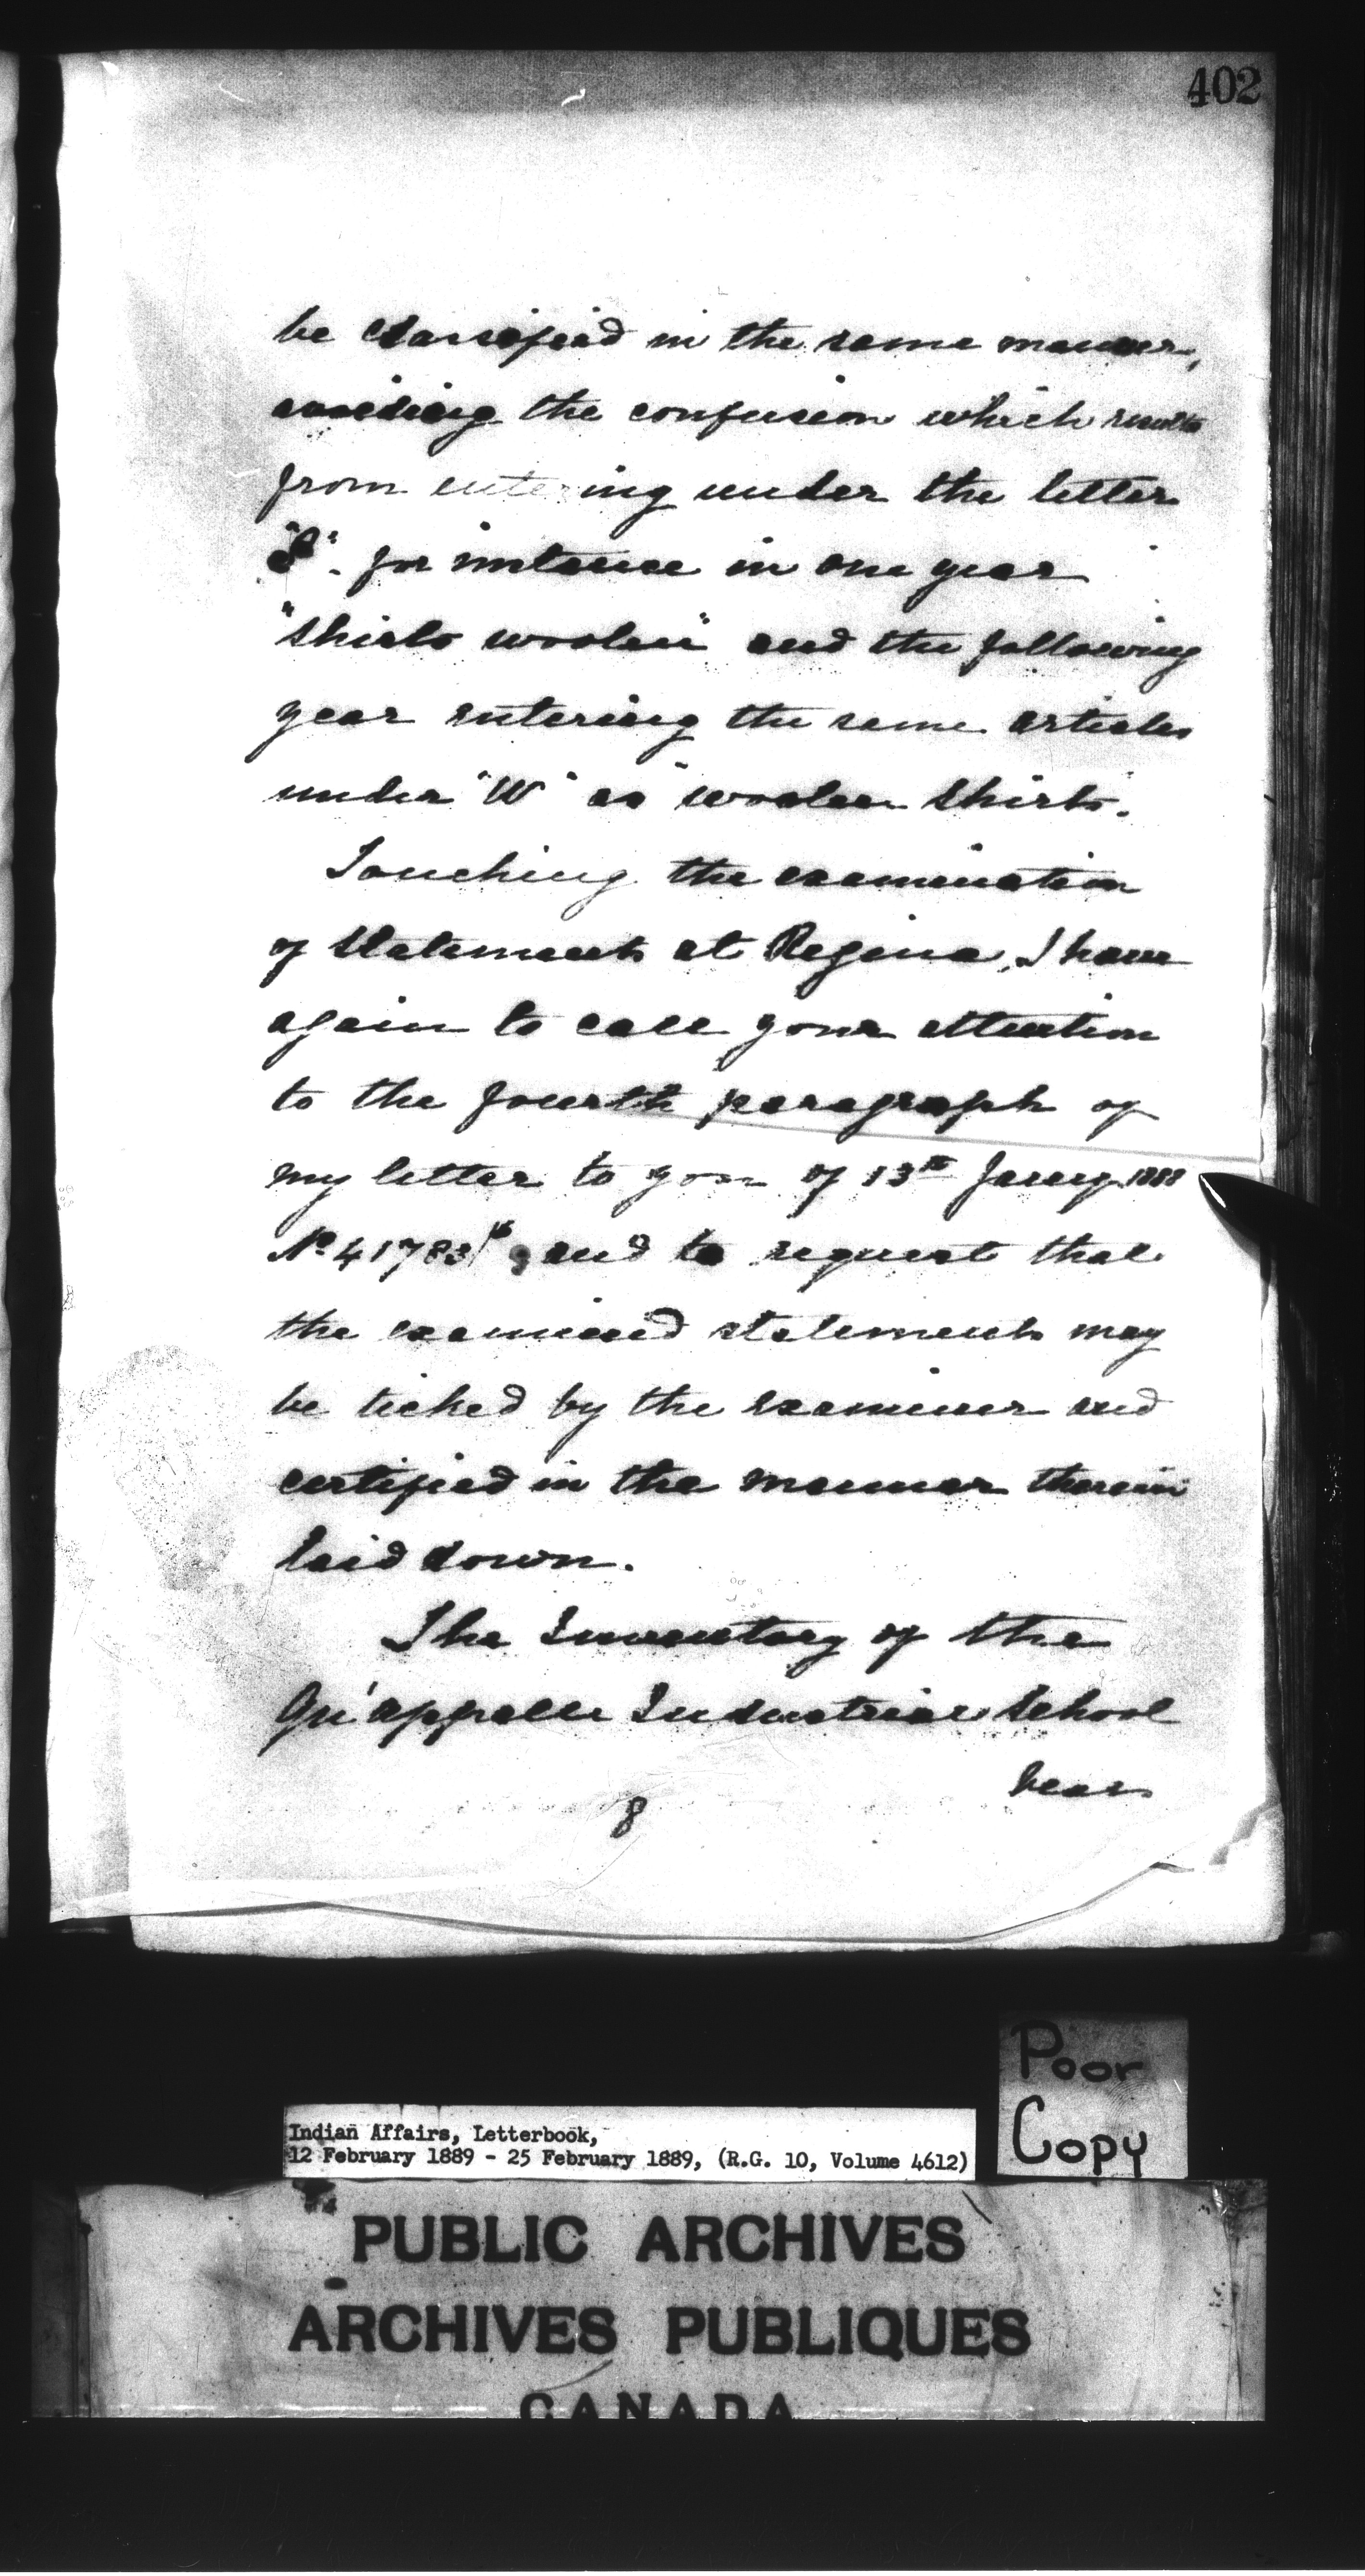 402
be classified in the same manner,
avoiding the confusion which results
from entering under the letter
"S". for instance in one year
"Shirts woolen" and the following
year entering the same articles
under "W" as "woolen Shirts.
Touching the examination
of Statements at Regina, I have
again to call your attention
to the fourth paragraph of
my letter to you of 13th Jany 1888
No 41783, and to request that
the examined statements may
be ticked by the examiner and
certified in the manner therein
laid down.
The Inventory of the
Qu'appelle Industrial School
bears
8
Poor
Copy
Indian Affairs, Letterbook,
12 February 1889 - 25 February 1889, (R.G. 10, Volume 4612)
PUBLIC ARCHIVES
ARCHIVES PUBLIQUES
CANADA